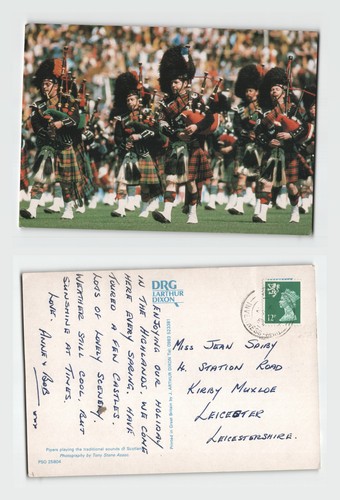 ENJOYING OUR HOLIDAY
IN THE HIGHLANDS. WE COME
HERE EVERY SPRING. HAVE
TOURED A FEW CASTLES.
LOTS OF LOVELY SCENERY.
WEATHER STILL COOL, BUT
SUNSHINE AT TIMES.
LOVE. ANNE & BOB
xxx
DRG
J.ARTHUR
DIXON
Printed in Great Britain by J. ARTHUR DIXON
12P
MISS JEAN SPIBY
4. STATION ROAD
KIRBY MUXLOE
LEICESTER
LEICESTERSHIRE.
Pipers playing the traditional sounds of Scotland
Photography by Tony Stone Assoc